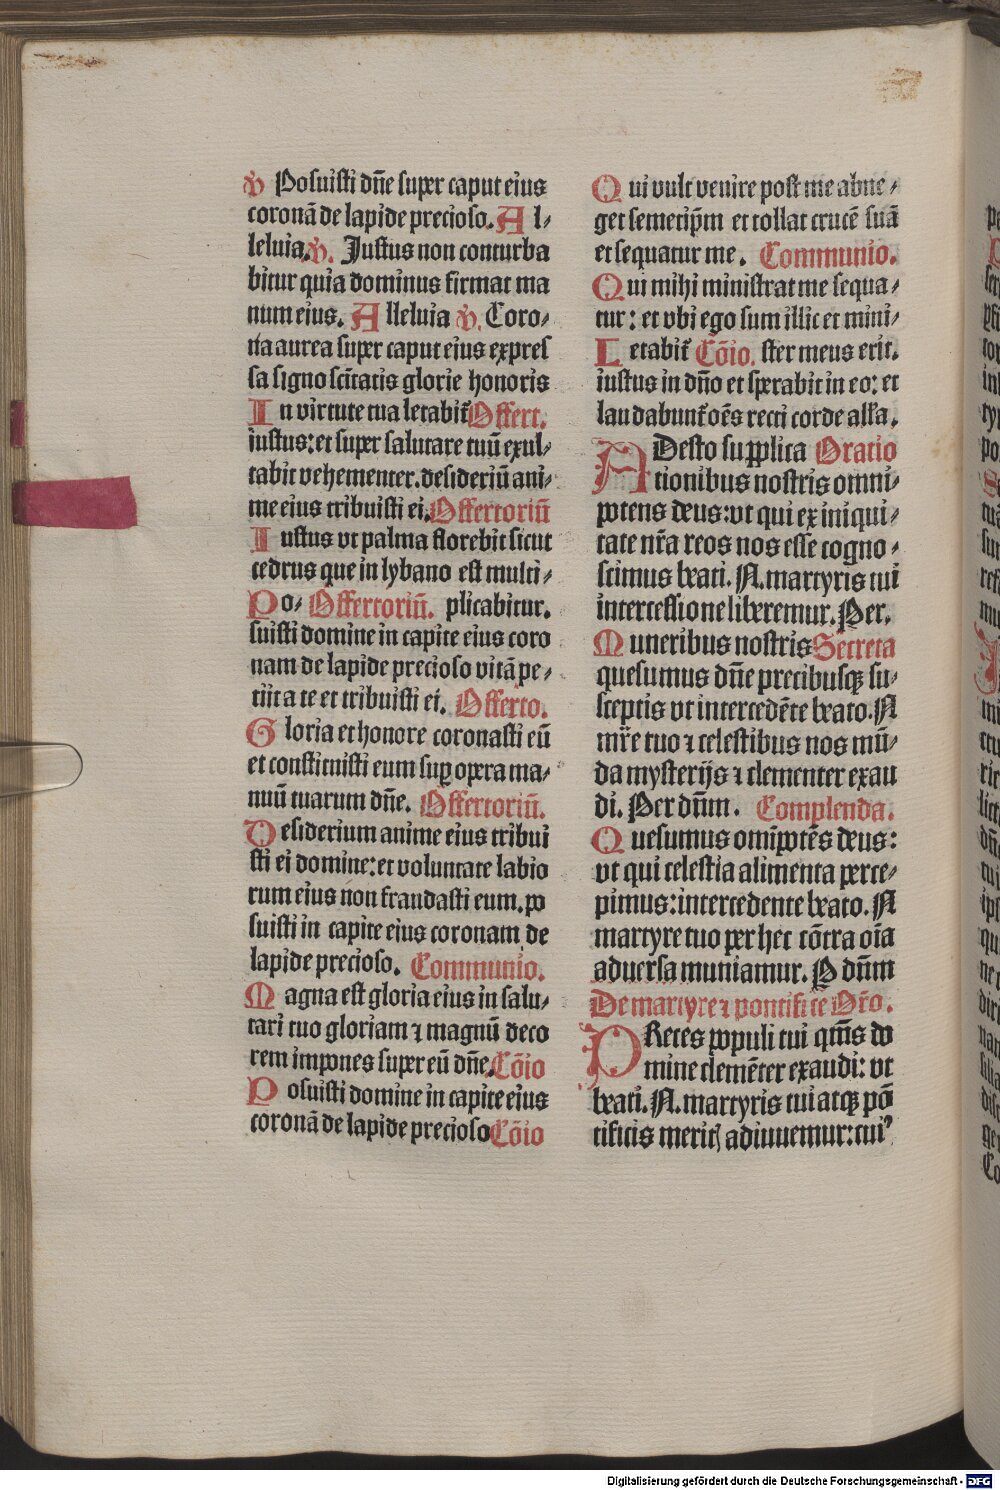 ℣ Posuisti dn̄e super caput eius
coronā de lapide precioso. Al-
leluia. ℣. Justus non conturba
bitur quia dominus firmat ma
num eius. Alleluia ℣. Coro-
na aurea super caput eius expres
sa signo sctītatis glorie honoris
In virtute tua letabit̄ Offert.
iustus: et super salutare tuū exul-
tabit vehementer. desideriū ani-
me eius tribuisti ei. Offertoriū
Iustus vt palma florebit sicut
cedrus que in lybano est multi-
Po- Offertoriū. plicabitur.
suisti domine in capite eius coro
nam de lapide precioso vitā pe-
tiit a te et tribuisti ei. Offerto.
Gloria et honore coronasti eū
et constituisti eum suꝑ opera ma-
nuū tuarum dn̄e. Offertoriū.
Desiderium anime eius tribui
sti ei domine: et voluntate labio
rum eius non fraudasti eum. po
suisti in capite eius coronam de
lapide precioso. Communio.
Magna est gloria eius in salu-
tari tuo gloriam ⁊ magnū deco
rem impones super eū dn̄e. Cōio
Posuisti domine in capite eius
coronā de lapide precioso Cōio
Qui vult venire post me abne-
get semetip̄m et tollat crucē suā
et sequatur me. Communio.
Qui mihi ministrat me sequa-
tur: et vbi ego sum illic et mini-
Letabit̄ Cōio. ster meus erit.
iustus in dn̄o et sperabit in eo: et
laudabunt̄ oēs recti corde alla.
ADesto supplica Oratio
tionibus nostris omni-
potens deus: vt qui ex iniqui-
tate nr̄a reos nos esse cogno-
scimus beati. N. martyris tui
intercessione liberemur. Per.
Muneribus nostris Secreta
quesumus dn̄e precibusqꝫ su-
sceptis vt intercedēte beato. N
mr̄e tuo ⁊ celestibus nos mū-
da mysterijs ⁊ clementer exau
di. Per dn̄m. Complenda.
Quesumus omīpotēs deus:
vt qui celestia alimenta perce-
pimus: intercedente beato. N
martyre tuo per hec cōtra oīa
aduersa muniamur. P dn̄m
De martyre ⁊ pontifice Or̄o.
PReces populi tui qm̄s do
mine clemēter exaudi: vt
beati. N. martyris tui atqꝫ pō
tificis meritꝭ adiuuemur: cuiꝰ
Digitalisierung gefördert durch die Deutsche Forschungsgemeinschaft - DFG